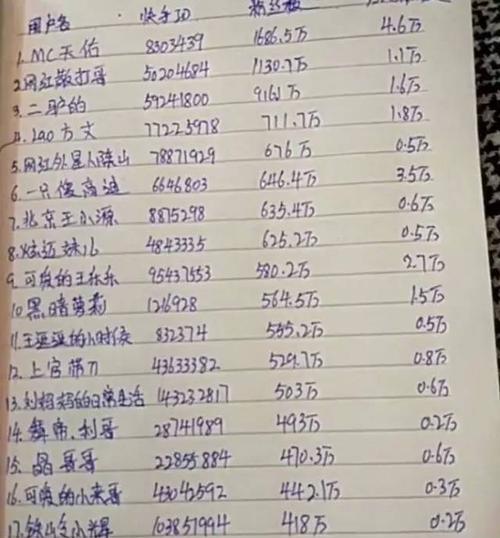 用户名 快手ID 粉丝数
1. MC天佑 8303439 1686.5万 4.6万
2. 网红散打哥 50204684 1130.7万 1.1万
3. 二驴的 59241800 916.1万 1.6万
4. 方丈 77225978 711.7万 1.8万
5. 网红外星人陈山 78871929 676万 0.5万
6. 一只傻高迪 6646803 646.4万 3.5万
7. 北京王小源 8875298 635.4万 0.6万
8. 炫迈妹儿 4843335 625.2万 0.5万
9. 可爱的王乐乐 95437553 580.2万 2.7万
10. 黑暗萝莉 1216928 564.5万 1.5万
11. 王逗逗的小时候 832374 555.2万 0.5万
12. 上官带刀 43633382 529.7万 0.8万
13. 刘妈妈的日常生活 143232817 503万 0.6万
14. 辞帝、利哥 28741989 493万 0.2万
15. 晶哥哥 22855884 470.3万 0.6万
16. 可爱的小来哥 43042592 442.1万 0.3万
17. 小辉 103851994 418万 0.2万